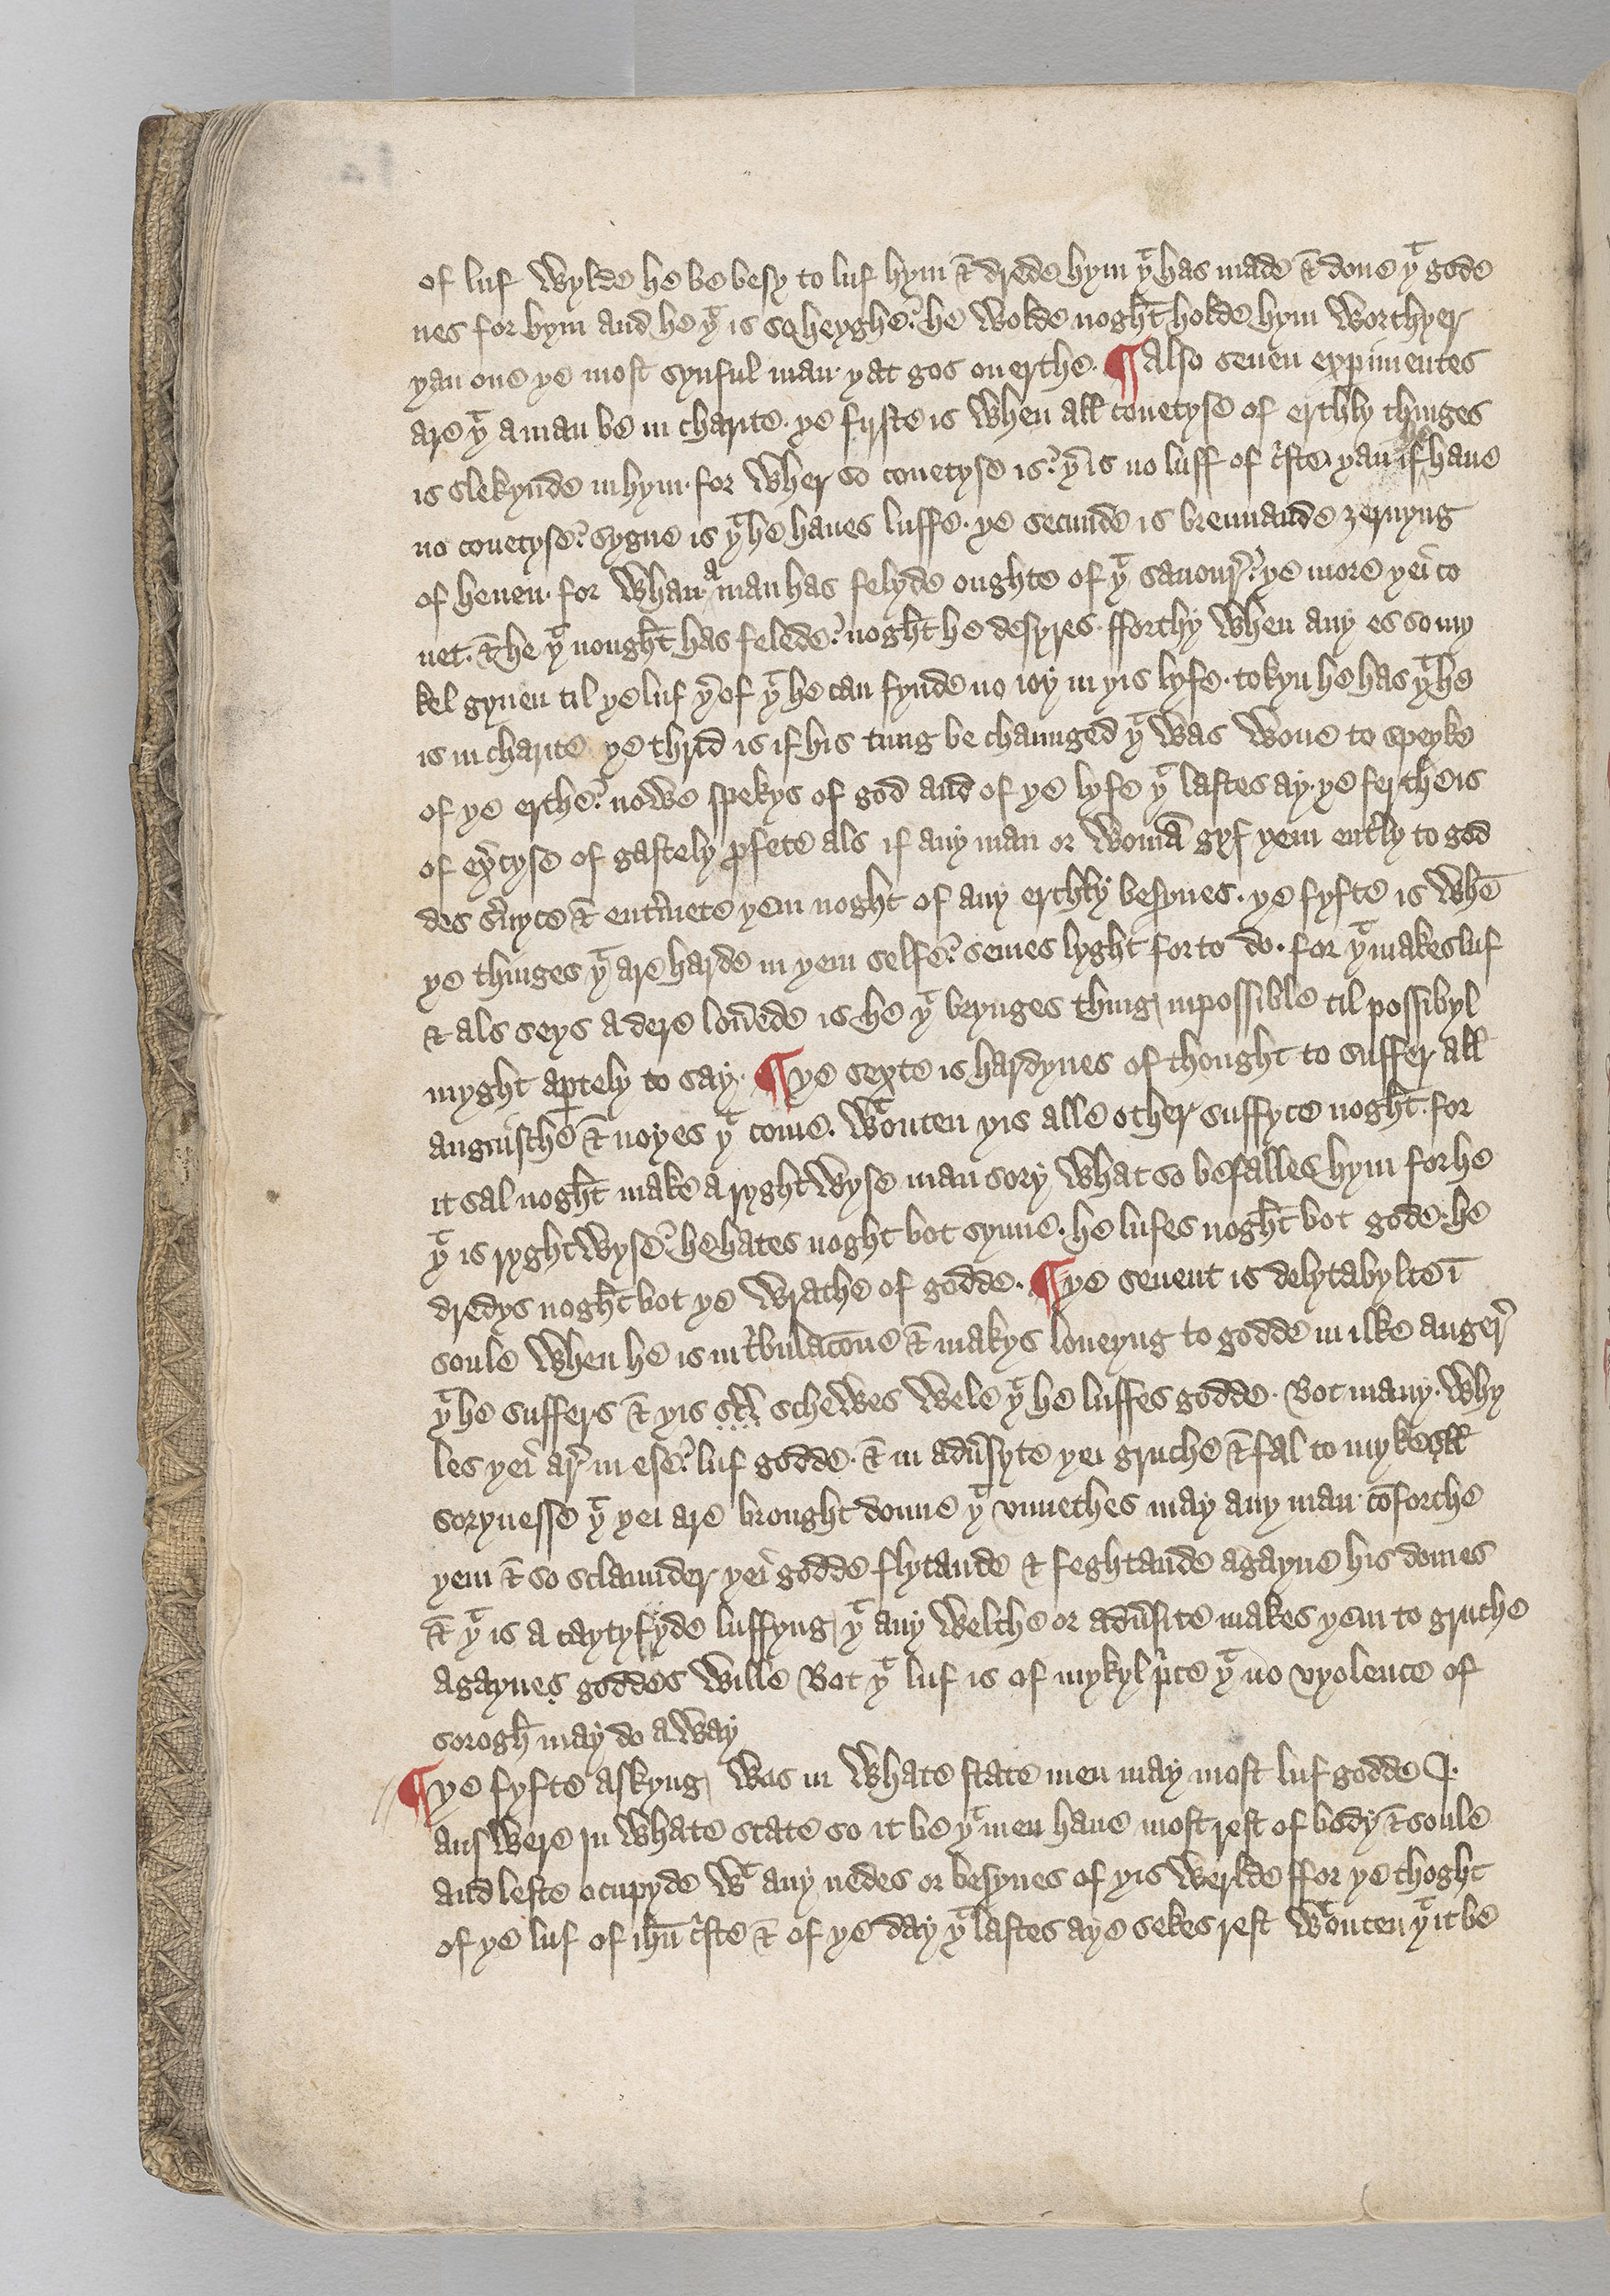 of luf wylde he be besy to luf hym & drede hym yͭ has made & done yͭ gode
nes for hym and he yͭ is so heyghe? he wolde noght holde hym worthyer
yan one ye most synful man yat gos on erthe. ¶ Also seuen expimentes
are yͭ a man be in charite. ye firste is when all couetyse of erthly thinges
is slekynde in hym. for wher so couetyse is? yͬ is no luff of cͥste yan if he haue
no couetyse? sygne is yͭ he haues luffe. ye secunde is brennande ȝernyng
of heuen. for whan a man has felyde oughte of yͭ sauour? ye more yei co
uet. & he yͭ nought has felede? noght he desyres. fforthy when any es so my
kel gyuen til ye luf yͬof yͭ he can fynde no ioy in yis lyfe. tokyn he has yͭ he
is in charite ye thrid is if his tung be chaunged yͭ was wone to speyke
of ye erthe? nowe spekys of god and of ye lyfe yͭ lastes ay. ye ferthe is
of exͬcyse of gastely ꝓfete als if any man or womā gyf yem entͬly to god
des sͬuyce & entͬmete yem noght of any erthly besynes. ye fyfte is whē
ye thinges yͭ are harde in yem selfe? semes lyght for to do. for yͭ makes luf
& als seys a dere louede is he yͭ brynges thing inpossible til possibyl
myght aꝑtely to say. ¶ ye sexte is hardynes of thought to suffer all
anguische & noyes yͭ come. wͭouten yis alle other suffyce noght. for
it sal noght make a ryghtwyse man sory what so befalles hym for he
yͭ is ryghtwyse? he hates noght bot synne. he lufes noght bot gode. he
dredys noght bot ye wrathe of godde. ¶ ye seuent is delytabylte ī
soule when he is in tͥbulacōne & makys loueyng to godde in ilke anger
yͭ he suffers & yis schewes wele yͭ he luffes godde. Bot many. why
les yei ar in ese? luf godde. & in adūsyte yei gruche & fal to mykell
sorynesse yͭ yei are brought doune yͭ vnnethes may any man cōforthe
yem & so sclaunder yei godde flytande & feghtande agayne his domes
& yͭ is a caytyfyde luffyng yͭ any welthe or adūsite makes yem to gruche
agaynes goddes wille Bot yͭ luf is of mykyl pͥce yͭ no vyolence of
sorogh may do away
¶ ye fyfte askyng was in whate state men may most luf godde I.
answere in whate state so it be yͭ men haue most rest of body & soule
and leste ocupyde wͭ any nedes or besynes of yis werlde ffor ye thoght
of ye luf of ihū cͥste & of ye day yͭ lastes aye sekes rest wͭouten yͭ it be